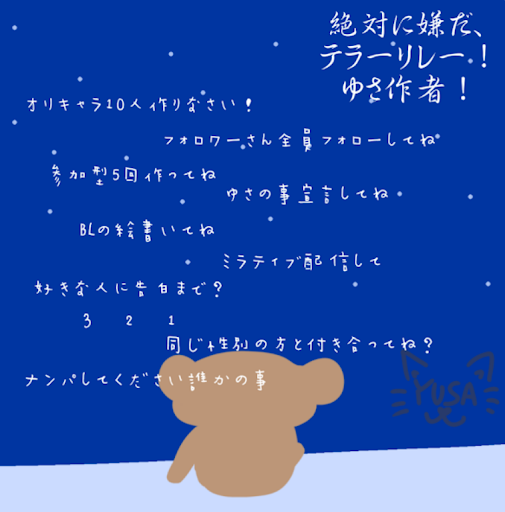 絶対に嫌だ、
テラーリレー!
ゆさ作者!
オリキャラ10人作りなさい!
フォロワーさん全員フォローしてね
参加型5回作ってね
ゆさの事宣言してね
BLの絵書いてね
ミラティブ配信して
好きな人に告白まで?
3 2 1
同じ性別の方と付き合ってね?
ナンパしてください誰かの事
YUSA